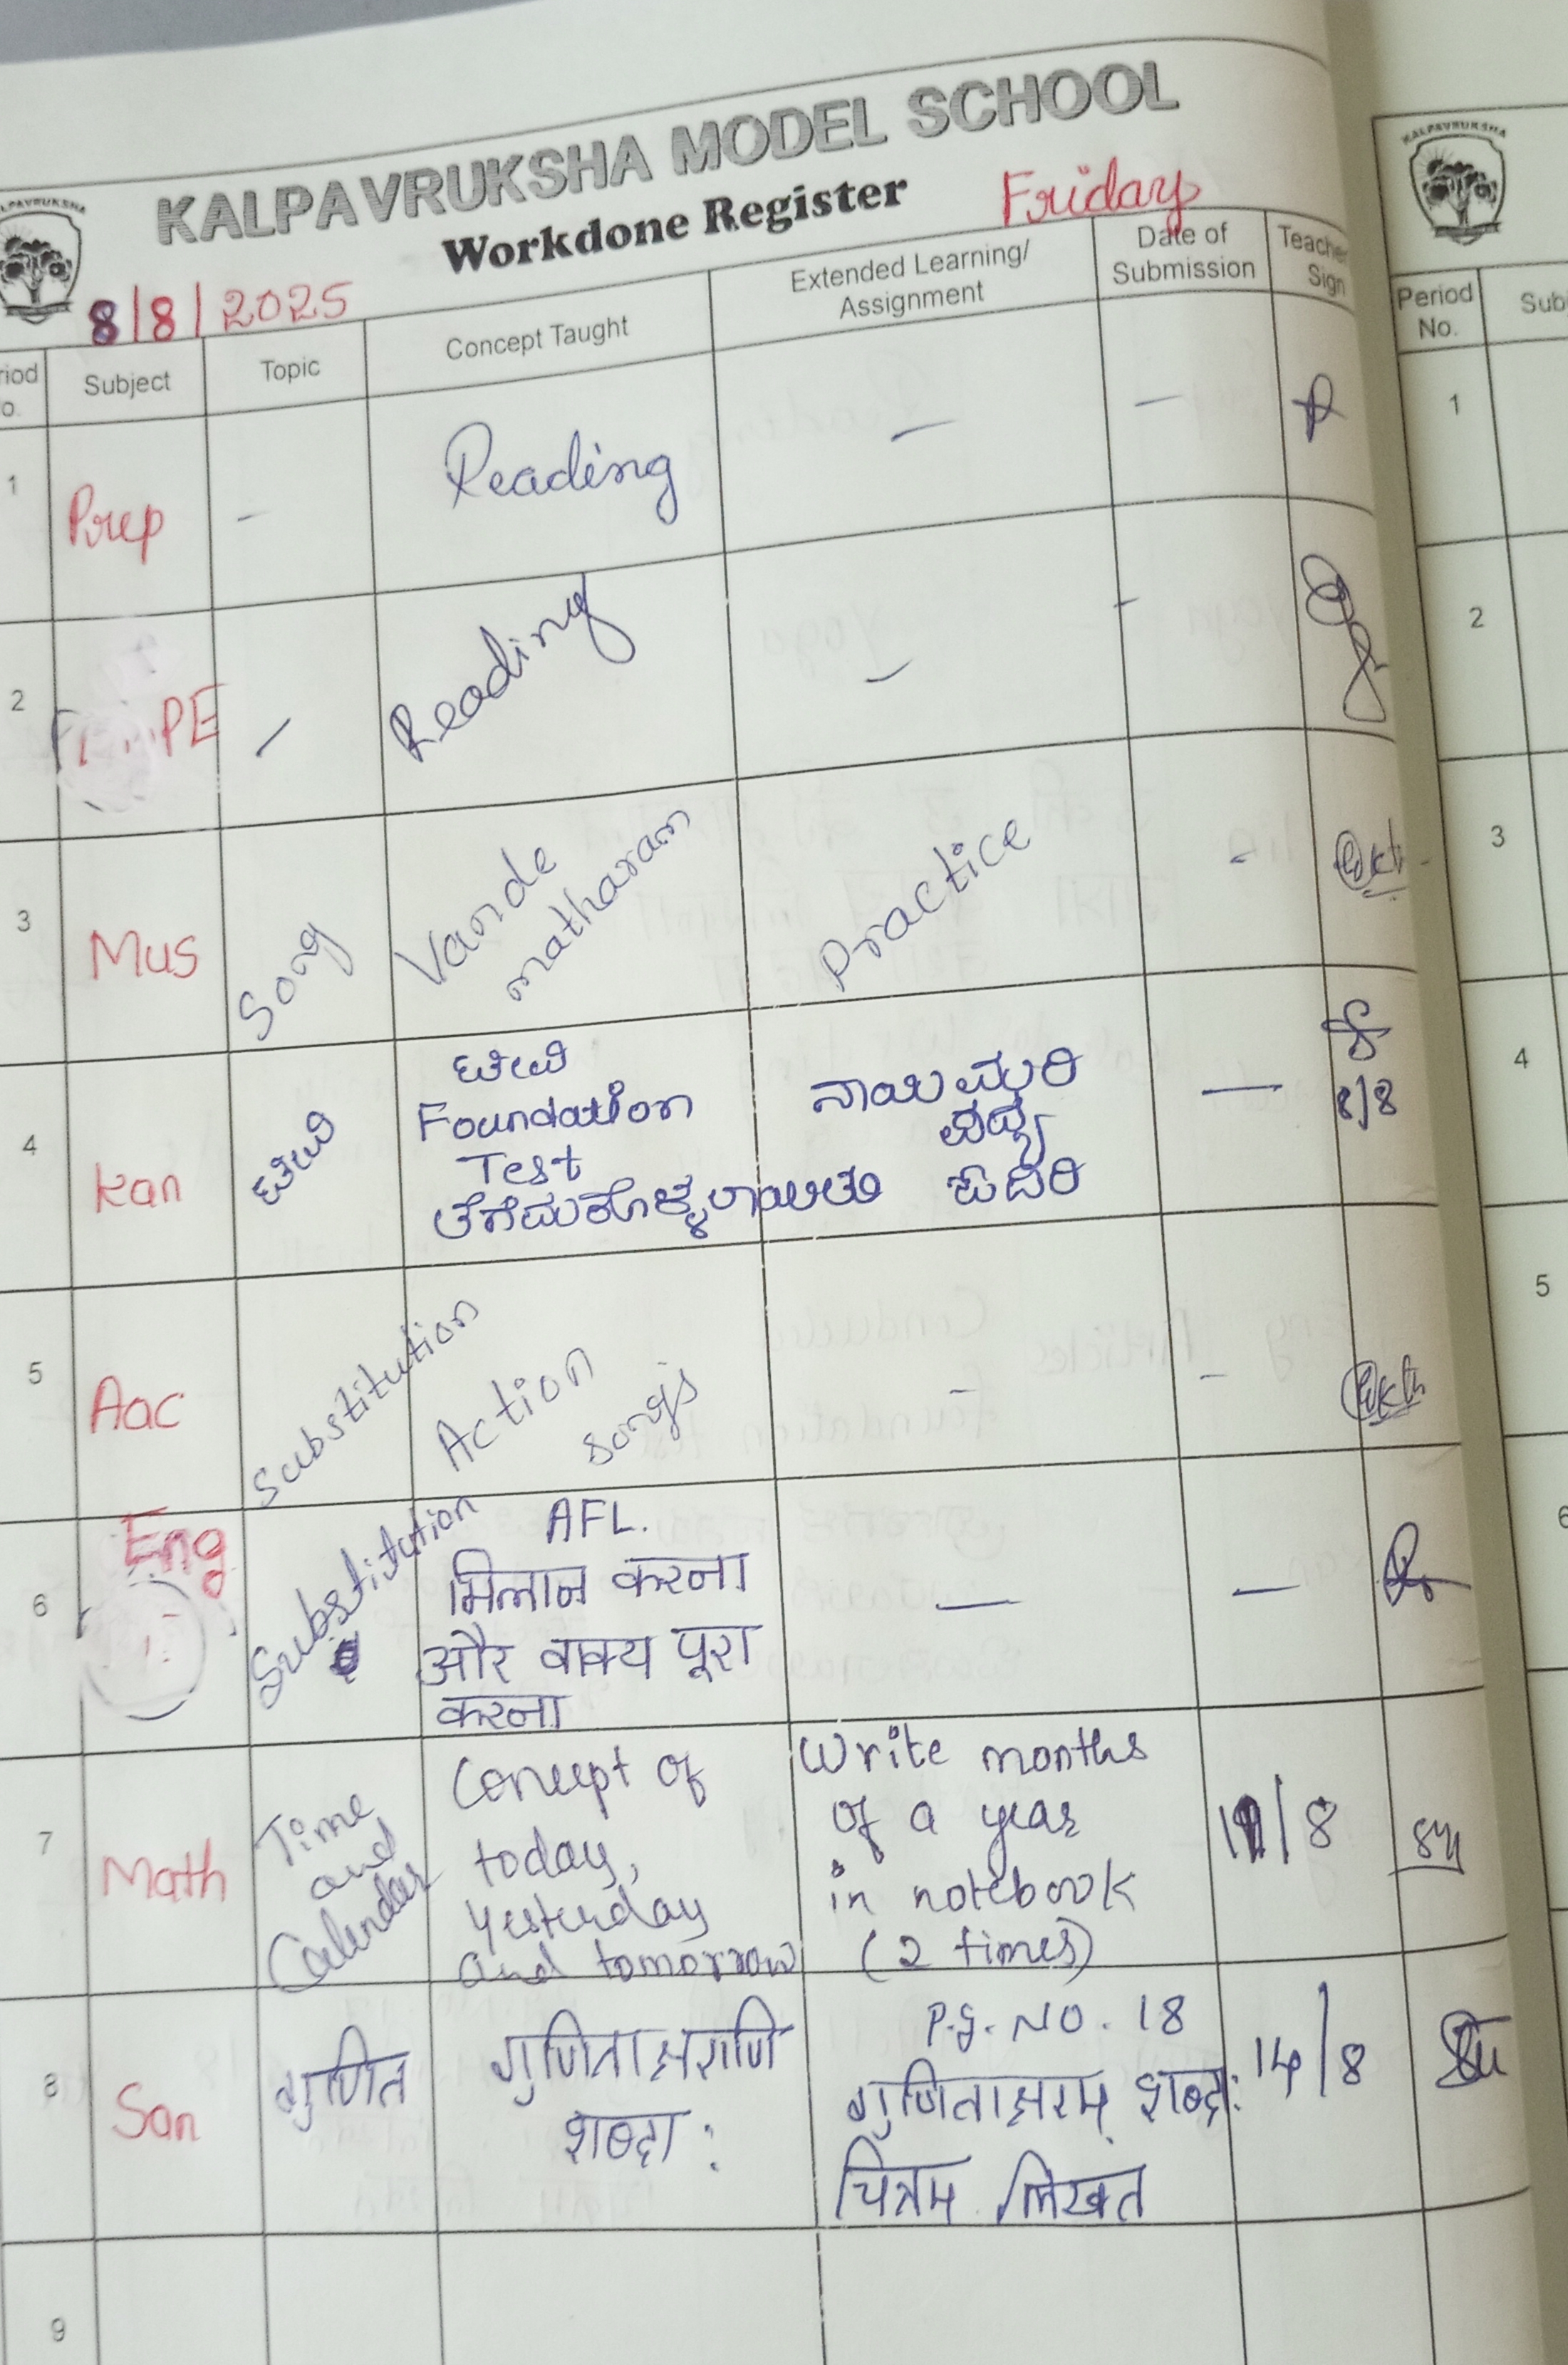 KALPAVRUKSHA MODEL SCHOOL
Workdone Register Friday
8/8/2025
Subject Topic Concept Taught Extended Learning/ Assignment Date of Submission Teacher Sign
1 Prep - Reading — —
2 PE — Reading — -
3 Mus Song Vande matharam Practice -
4 Kan ಟಿವಿ
Foundation
Test
ನಾಯಿಮರಿ
ಪದ್ಯ
ಓದಿರಿ
—
8/8
5 Aac Substitution Action songs - -
6 Eng Substitution AFL.
मिलान करना
और वाक्य पूरा
करना
— —
7 Math Time and Calendar
Concept of
today,
yesterday
and tomorrow
Write months
of a year
in notebook
(2 times)
11/8
8 San गुणित
गुणिताक्षराणि
शब्दा:
P.g. NO. 18
गुणिताक्षरम् शब्दा:
चित्रम लिखत
14/8
9
KALPAVRUKSHA
Period No.
1
2
3
4
5
6